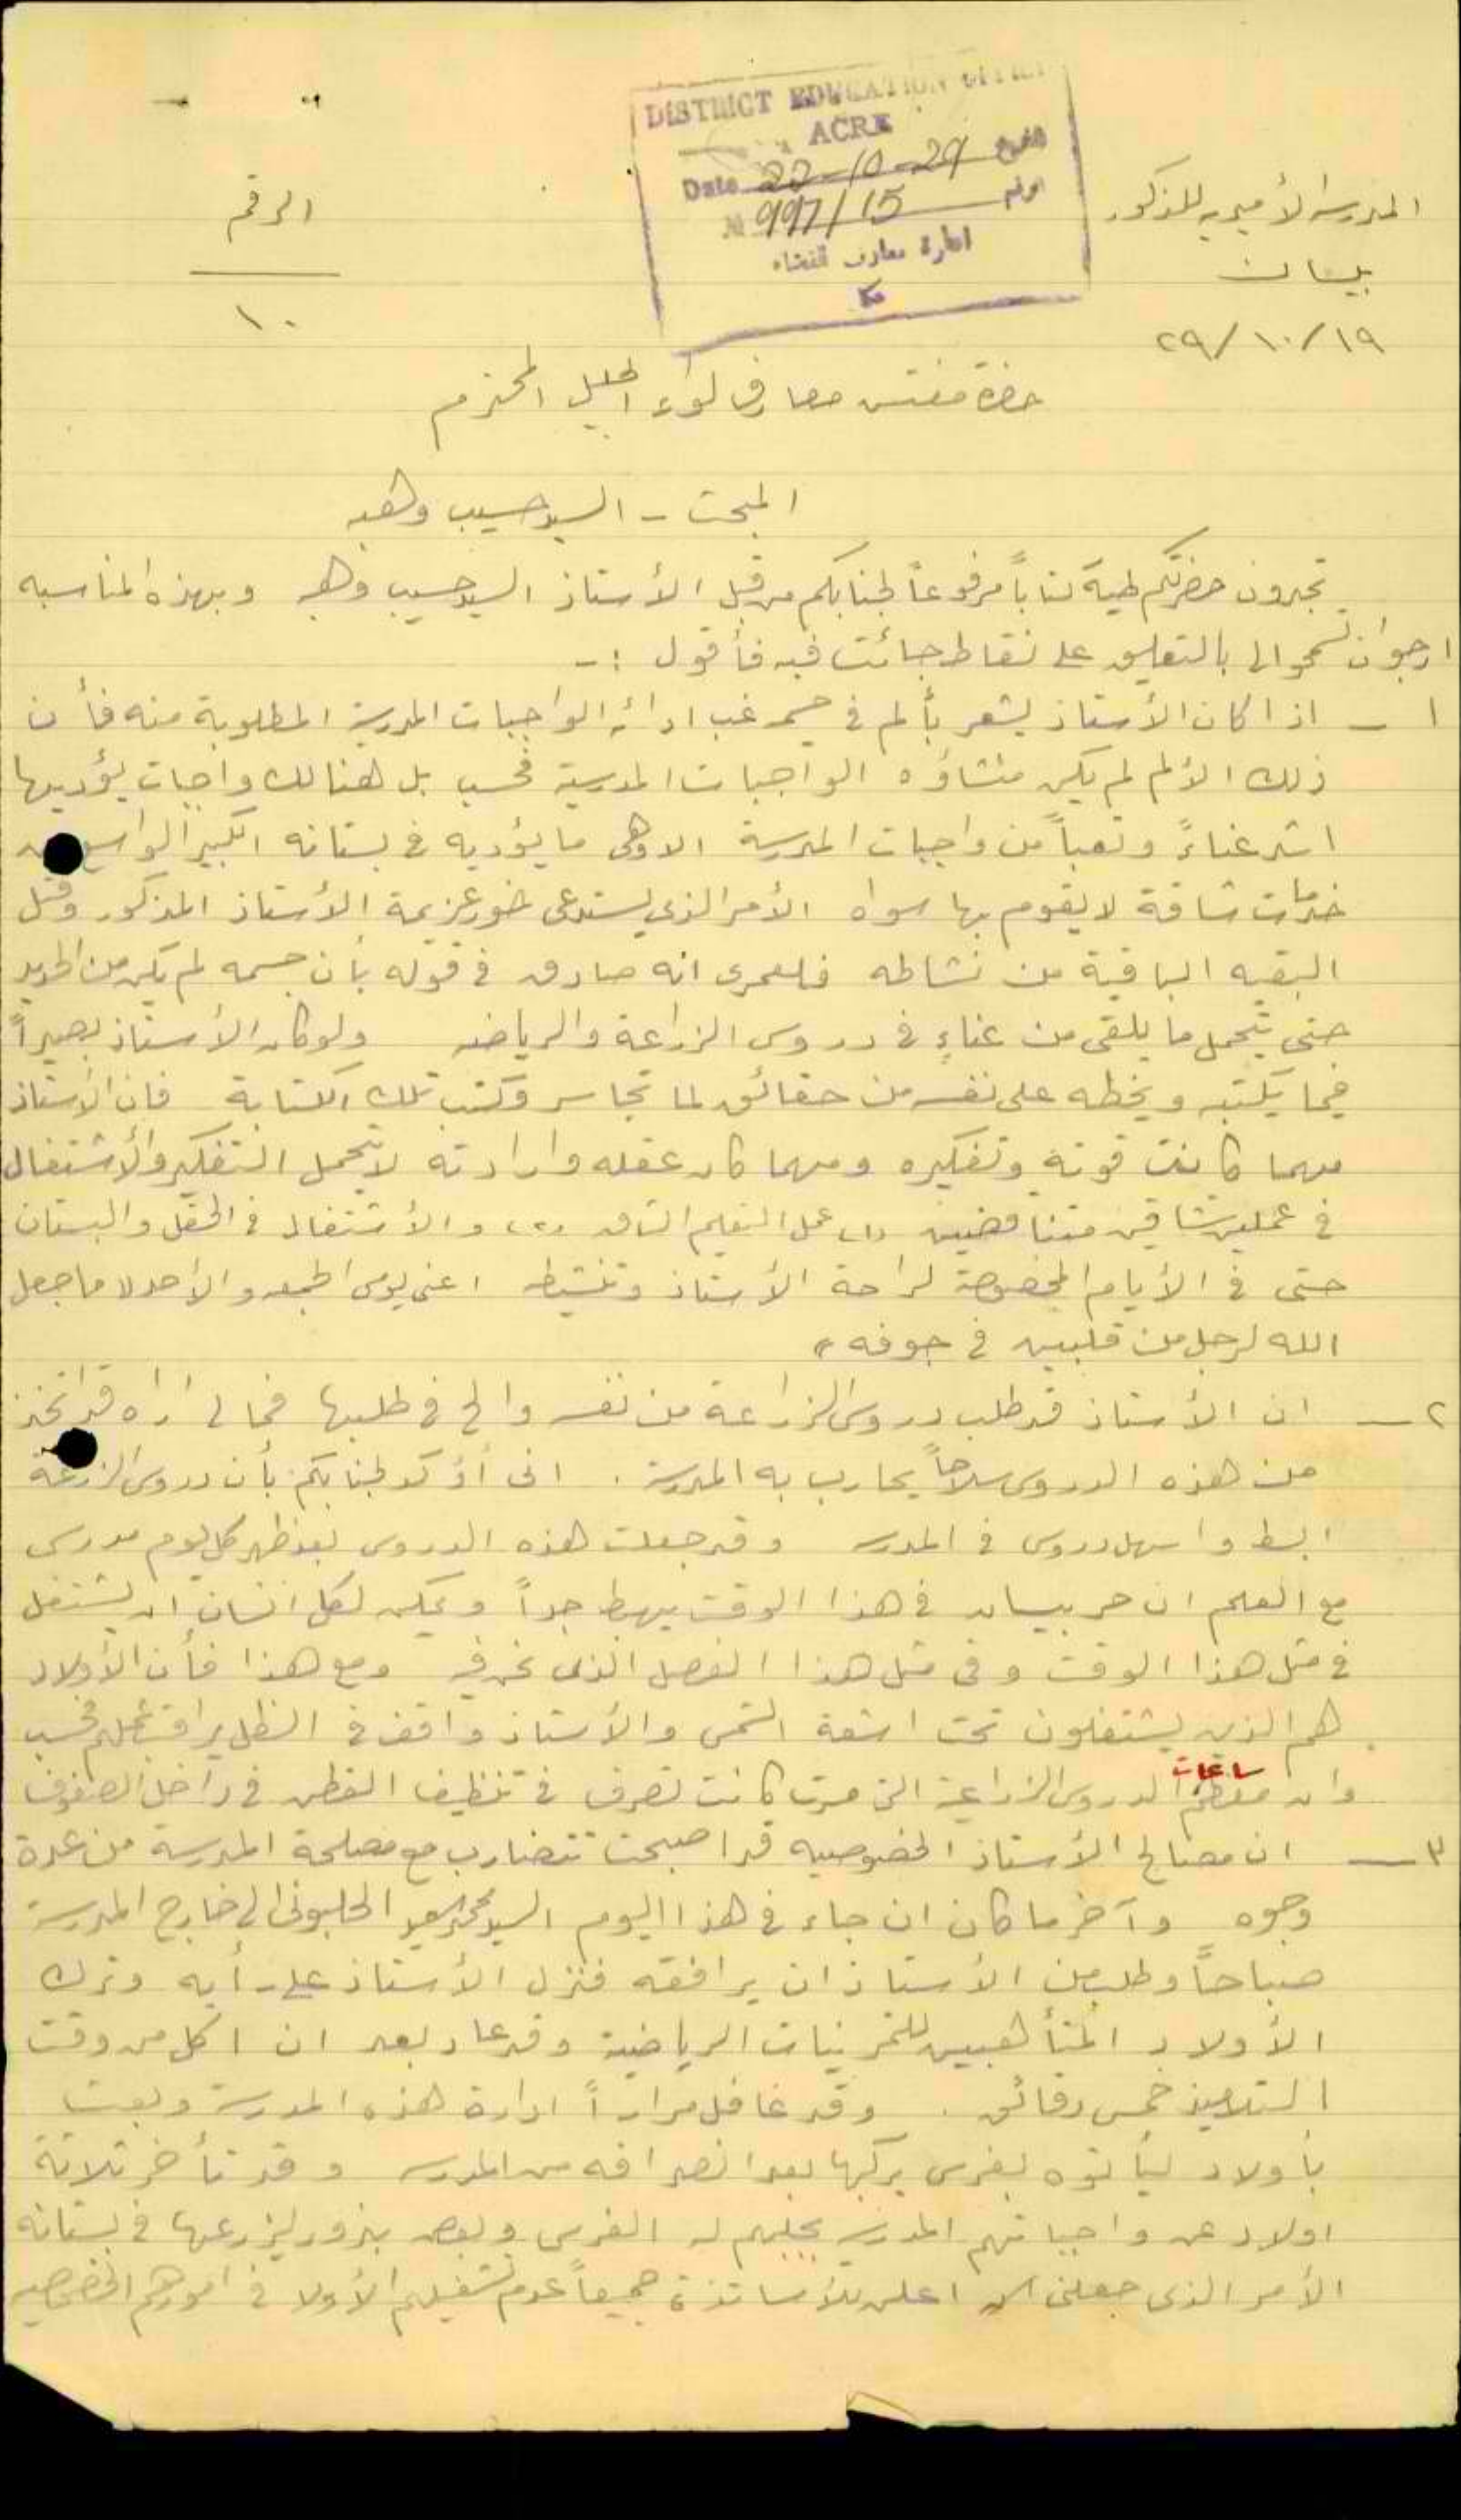 DISTRICT EDUCATION OFFICE
ACRE
Date 22-10-29 التاريخ
№ 997/15 الرقم
ادارة معارف القضاء
عكا
المدرسة الأميريه للذكور
بيسان
١٩/١٠/٢٩
الرقم
١٠
حضرة مفتش معارف لواء الجليل المحترم
المبحث - السيد حسيب وهبه
تجدون حضرتكم طيه كتاباً مرفوعاً لجنابكم من قبل الأستاذ السيد حسيب وهبه وبهذه المناسبه
ارجو ان تسمحوا لي بالتعليق على نقاط جائت فيه فأقول :-
١ - اذا كان الأستاذ يشعر بألم في جسمه غب ادائه الواجبات المدرسية المطلوبة منه فأن
ذلك الألم لم يكن منشاؤه الواجبات المدرسية فحسب بل هنالك واجبات يؤديها
اشد عناءً وتعباً من واجبات المدرسة الا وهى ما يؤديه في بستانه الكبير الواسع من
خدمات شاقة لا يقوم بها سواه الأمر الذي يستدعى خور عزيمة الأستاذ المذكور وقتل
البقيه الباقية من نشاطه فلعمرى انه صادق في قوله بأن جسمه لم يكن من الحديد
حتى يتحمل ما يلقى من عناءٍ في دروس الزراعة والرياضه ولو كان الأستاذ بصيراً
فيما يكتبه ويخطه على نفسه من حقائق لما تجاسر وكتب تلك الكتابة فان الأستاذ
مهما كانت قوته وتفكيره ومهما كان عقله وارادته لا يتحمل التفكير والأشتغال
في عملين شاقين متناقضين (١) عمل التعليم الشاق (٢) والأشتغال في الحقل والبستان
حتى في الأيام المخصوصة لراحة الأستاذ وتنشيطه اعنى يومى الجمعه والأحد "ما جعل
الله لرجل من قلبين في جوفه"
٢ - ان الأستاذ قد طلب دروس الزراعة من نفسه والح في طلبها فما لي اراه قد اتخذ
من هذه الدروس سلاحاً يحارب به المدرسة . انى أؤكد لجنابكم بأن دروس الزراعة
ابسط واسهل دروس في المدرسه وقد جعلت هذه الدروس بعد ظهر كل يوم مدرسى
مع العلم ان حر بيسان في هذا الوقت يهبط جداً ويمكن لكل انسان ان يشتغل
في مثل هذا الوقت وفي مثل هذا الفصل الذى نحن فيه ومع هذا فأن الأولاد
هم الذين يشتغلون تحت اشعة الشمس والأستاذ واقف في الظل يراقب عملهم فحسب
وان معظم ساعات الدروس الزراعية التي مرت كانت تصرف في تنظيف القطن في داخل الصفوف
٣ - ان مصالح الأستاذ الخصوصيه قد اصبحت تتضارب مع مصلحة المدرسة من عدة
وجوه وآخر ما كان ان جاء في هذا اليوم السيد محمد سعيد الحلبونى الى خارج المدرسة
صباحاً وطلب من الأستاذ ان يرافقه فنزل الأستاذ على رأيه وترك
الأولاد المتأهبين للتمرينات الرياضية وقد عاد بعد ان اكل من وقت
التلاميذ خمس دقائق . وقد غافل مراراً ادارة هذه المدرسة وبعث
بأولاد ليأتوه بفرس يركبها بعد انصرافه من المدرسه وقد تأخر ثلاثة
اولاد عن واجباتهم المدرسيه بجلبهم له الفرس وبعض بزور ليزرعها في بستانه
الأمر الذى جعلنى ان اعلن للأساتذة جميعاً عدم تشغيلهم الأولاد في امورهم الخصوصيه